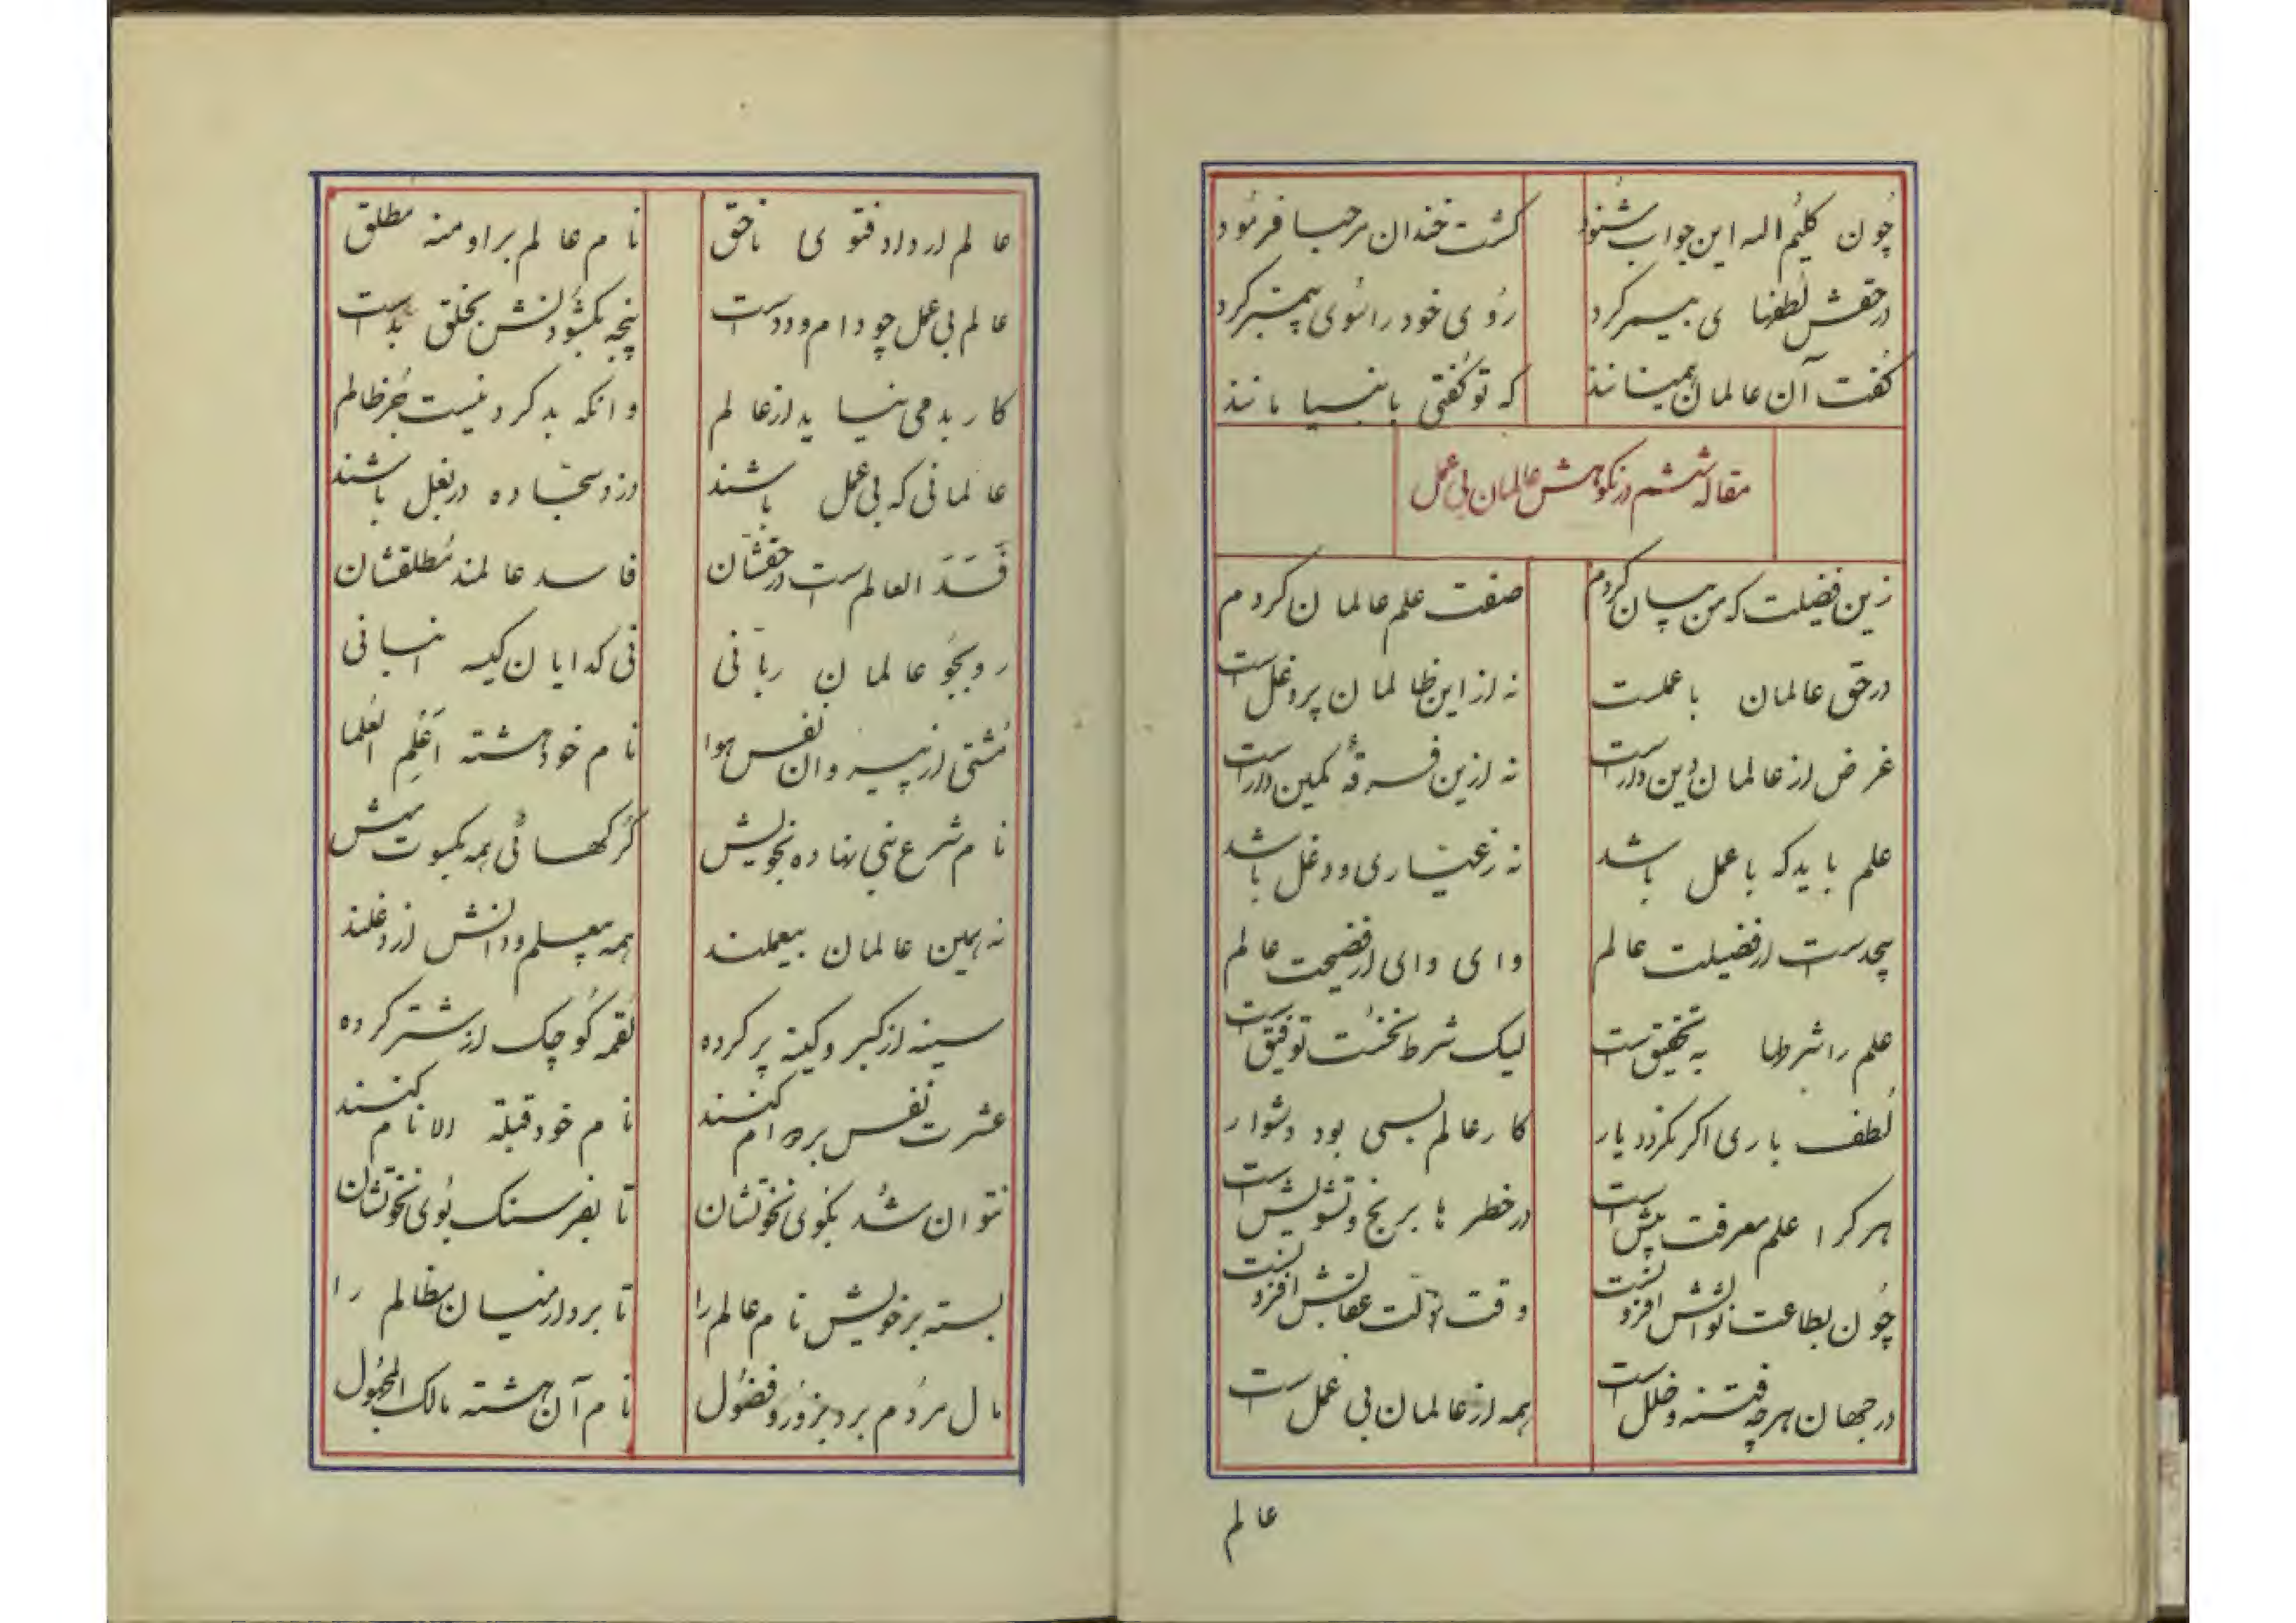 چون کلیم اله این جواب شنود	کشت خندان مرحبا فرمود
در حقش لطفها ی بیمر کرد	روی خود را سوی پیمبر کرد
کفت آن عالمان همینانند	که تو کفتی بانبیا مانند
مقاله ششم در نکوهش عالمان بی عمل
زین فضیلت که من بیان کردم	صفت علم عالمان کردم
در حق عالمان با عملست	نه از این ظالمان پر دغل است
غرض از عالمان دین دار است	نه ازین فرقه کمین دار است
علم باید که با عمل باشد	نه ز عیاری و دغل باشد
بیحد است از فضیلت عالم	وای وای از فضیحت عالم
علم را شرطها به تحقیق است	لیک شرط نخست توفیق است
لطف باری اکر نکردد یار	کار عالم بسی بود دشوار
هر کرا علم معرفت پیش است	در خطر ها برنج و تشویش است
چون بطاعت ثوابش افزونست	وقت ذلت عقابش افزونست
در جهان هرچه فتنه و خلل است	همه از عالمان بی عمل است
عالم
عالم ار داد فتوی ناحق	نام عالم بر او منه مطلق
عالم بی عمل چو دام و دد است	پنجه بکشودنش بخلق بد است
کار بد می نیاید از عالم	وانکه بد کرد نیست جز ظالم
عالمانی که بی عمل باشند	دزد سجاده در بغل باشند
فَسَدَ العالم است در حقشان	فاسد عالمند مطلقشان
رو بجو عالمان ربانی	نی کدایان کیسه انبانی
مشتی از پیروان نفس هوا	نام خود هشته اَعْلم العلما
نام شرع نبی نهاده بخویش	کرکهائی همه بکسوت میش
نه همین عالمان بیعملند	همه بیعلم و دانش از دغلند
سینه از کبر و کینه پر کرده	لقمه کوچک از شتر کرده
عشرت نفس بر دوام کنند	نام خود قبلة الانام کنند
نتوان شد بکوی نخوتشان	تا بفرسنک بوی نخوتشان
بسته بر خویش نام عالم را	تا برد از میان مظالم را
مال مردم برد بزور و فضول	نام آن هشته مالک المجهول